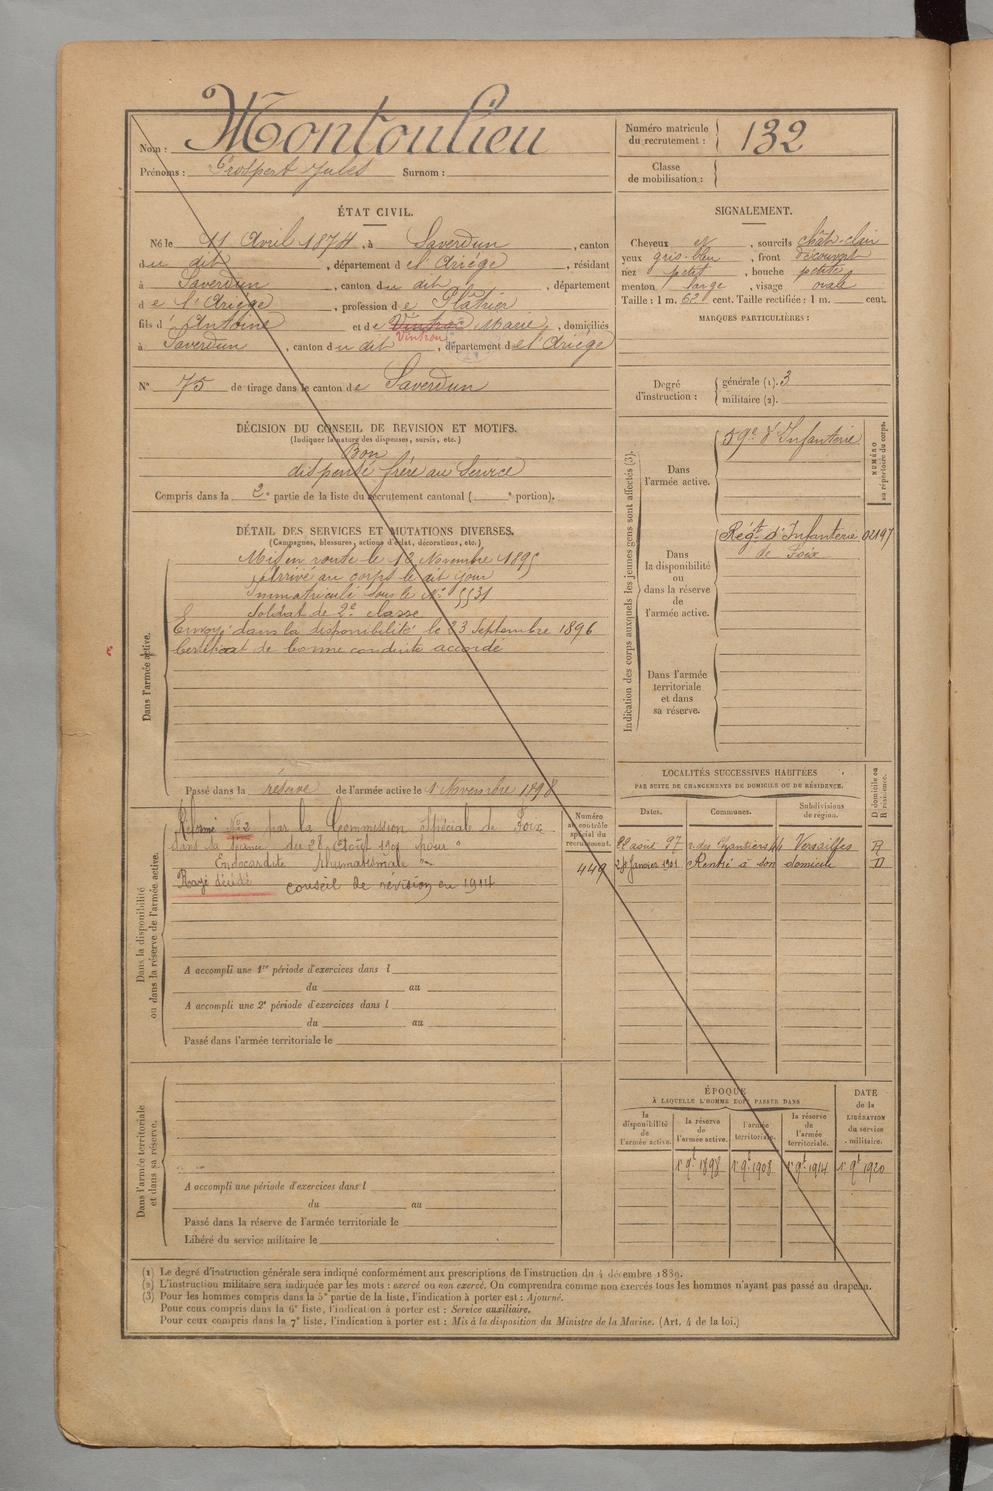 Nom : Montoulieu
Prénoms : Prospert Jules Surnom :
Numéro matricule du recrutement : 132
Classe de mobilisation :
ÉTAT CIVIL.
Né le 11 Avril 1874, à Saverdun, canton
du dit, département de l'Ariége, résidant
à Saverdun, canton du dit, département
de l'Ariége, profession de Plâtrier
fils d'Antoine et de Vintrac Marie, domiciliés
Vintrou
à Saverdun, canton du dit, département de l'Ariége
N° 75 de tirage dans le canton de Saverdun
SIGNALEMENT.
Cheveux et, sourcils chât-clair
yeux gris-bleu, front découvert
nez petit, bouche petite
menton large, visage ovale
Taille : 1 m. 62 cent. Taille rectifiée : 1 m. cent.
MARQUES PARTICULIÈRES :
Degré d'instruction : générale (1). 3
militaire (2).
DÉCISION DU CONSEIL DE REVISION ET MOTIFS.
(Indiquer la nature des dispenses, sursis, etc.)
Bon
dispensé frère au Service
Compris dans la 2e partie de la liste du recrutement cantonal ( e portion).
DÉTAIL DES SERVICES ET MUTATIONS DIVERSES.
(Campagnes, blessures, actions d'éclat, décorations, etc.)
Dans l'armée active.
Mis en route le 12 Novembre 1895
Arrivé au corps le dit jour
Immatriculé sous le N° 5531
Soldat de 2e classe
Envoyé dans la disponibilité le 23 Septembre 1896
Certificat de bonne conduite accordé
Passé dans la réserve de l'armée active le 1 Novembre 1898
Indication des corps auxquels les jeunes gens sont affectés (3).
NUMÉRO au répertoire du corps.
Dans l'armée active.
59e d'Infanterie
Dans la disponibilité ou dans la réserve de l'armée active.
Régt d'Infanterie 02197
de Foix
Dans l'armée territoriale et dans sa réserve.
Dans la disponibilité ou dans la réserve de l'armée active.
Numéro au contrôle spécial du recrutement.
449
Réformé N° 2 par la Commission Spécial de Foix
dans la séance du 28 Août 1901 pour "
Endocardite rhumatismale "
Rayé décédé conseil de révision en 1914
A accompli une 1re période d'exercices dans l
du au
A accompli une 2e période d'exercices dans l
du au
Passé dans l'armée territoriale le
LOCALITÉS SUCCESSIVES HABITÉES
PAR SUITE DE CHANGEMENTS DE DOMICILE OU DE RÉSIDENCE.
D domicile ou R résidence.
Dates. Communes. Subdivisions de région.
22 août 97 r. des Chantiers 44 Versailles R
28 Janvier 1901 Rentré à son domicile D
Dans l'armée territoriale et dans sa réserve.
A accompli une période d'exercices dans l
du au
Passé dans la réserve de l'armée territoriale le
Libéré du service militaire le
ÉPOQUE
À LAQUELLE L'HOMME DOIT PASSER DANS
DATE de la LIBÉRATION du service militaire.
la disponibilité de l'armée active.
la réserve de l'armée active.
l'armée territoriale.
la réserve de l'armée territoriale.
1r 9t 1898 1r 9t 1908 1r 9t 1914 1r 9t 1920
(1) Le degré d'instruction générale sera indiqué conformément aux prescriptions de l'instruction du 4 décembre 1889.
(2) L'instruction militaire sera indiquée par les mots : exercé ou non exercé. On comprendra comme non exercés tous les hommes n'ayant pas passé au drapeau.
(3) Pour les hommes compris dans la 5e partie de la liste, l'indication à porter est : Ajourné.
Pour ceux compris dans la 6e liste, l'indication à porter est : Service auxiliaire.
Pour ceux compris dans la 7e liste, l'indication à porter est : Mis à la disposition du Ministre de la Marine. (Art. 4 de la loi.)